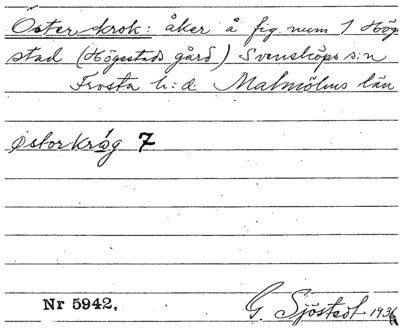 Öster krok: åker å fig. num 1 Hög
stad (Högestads gård) Svensköps s:n
Frosta h:d Malmöhus län
østorkróg 7
Nr 5942.
G. Sjöstedt 1936